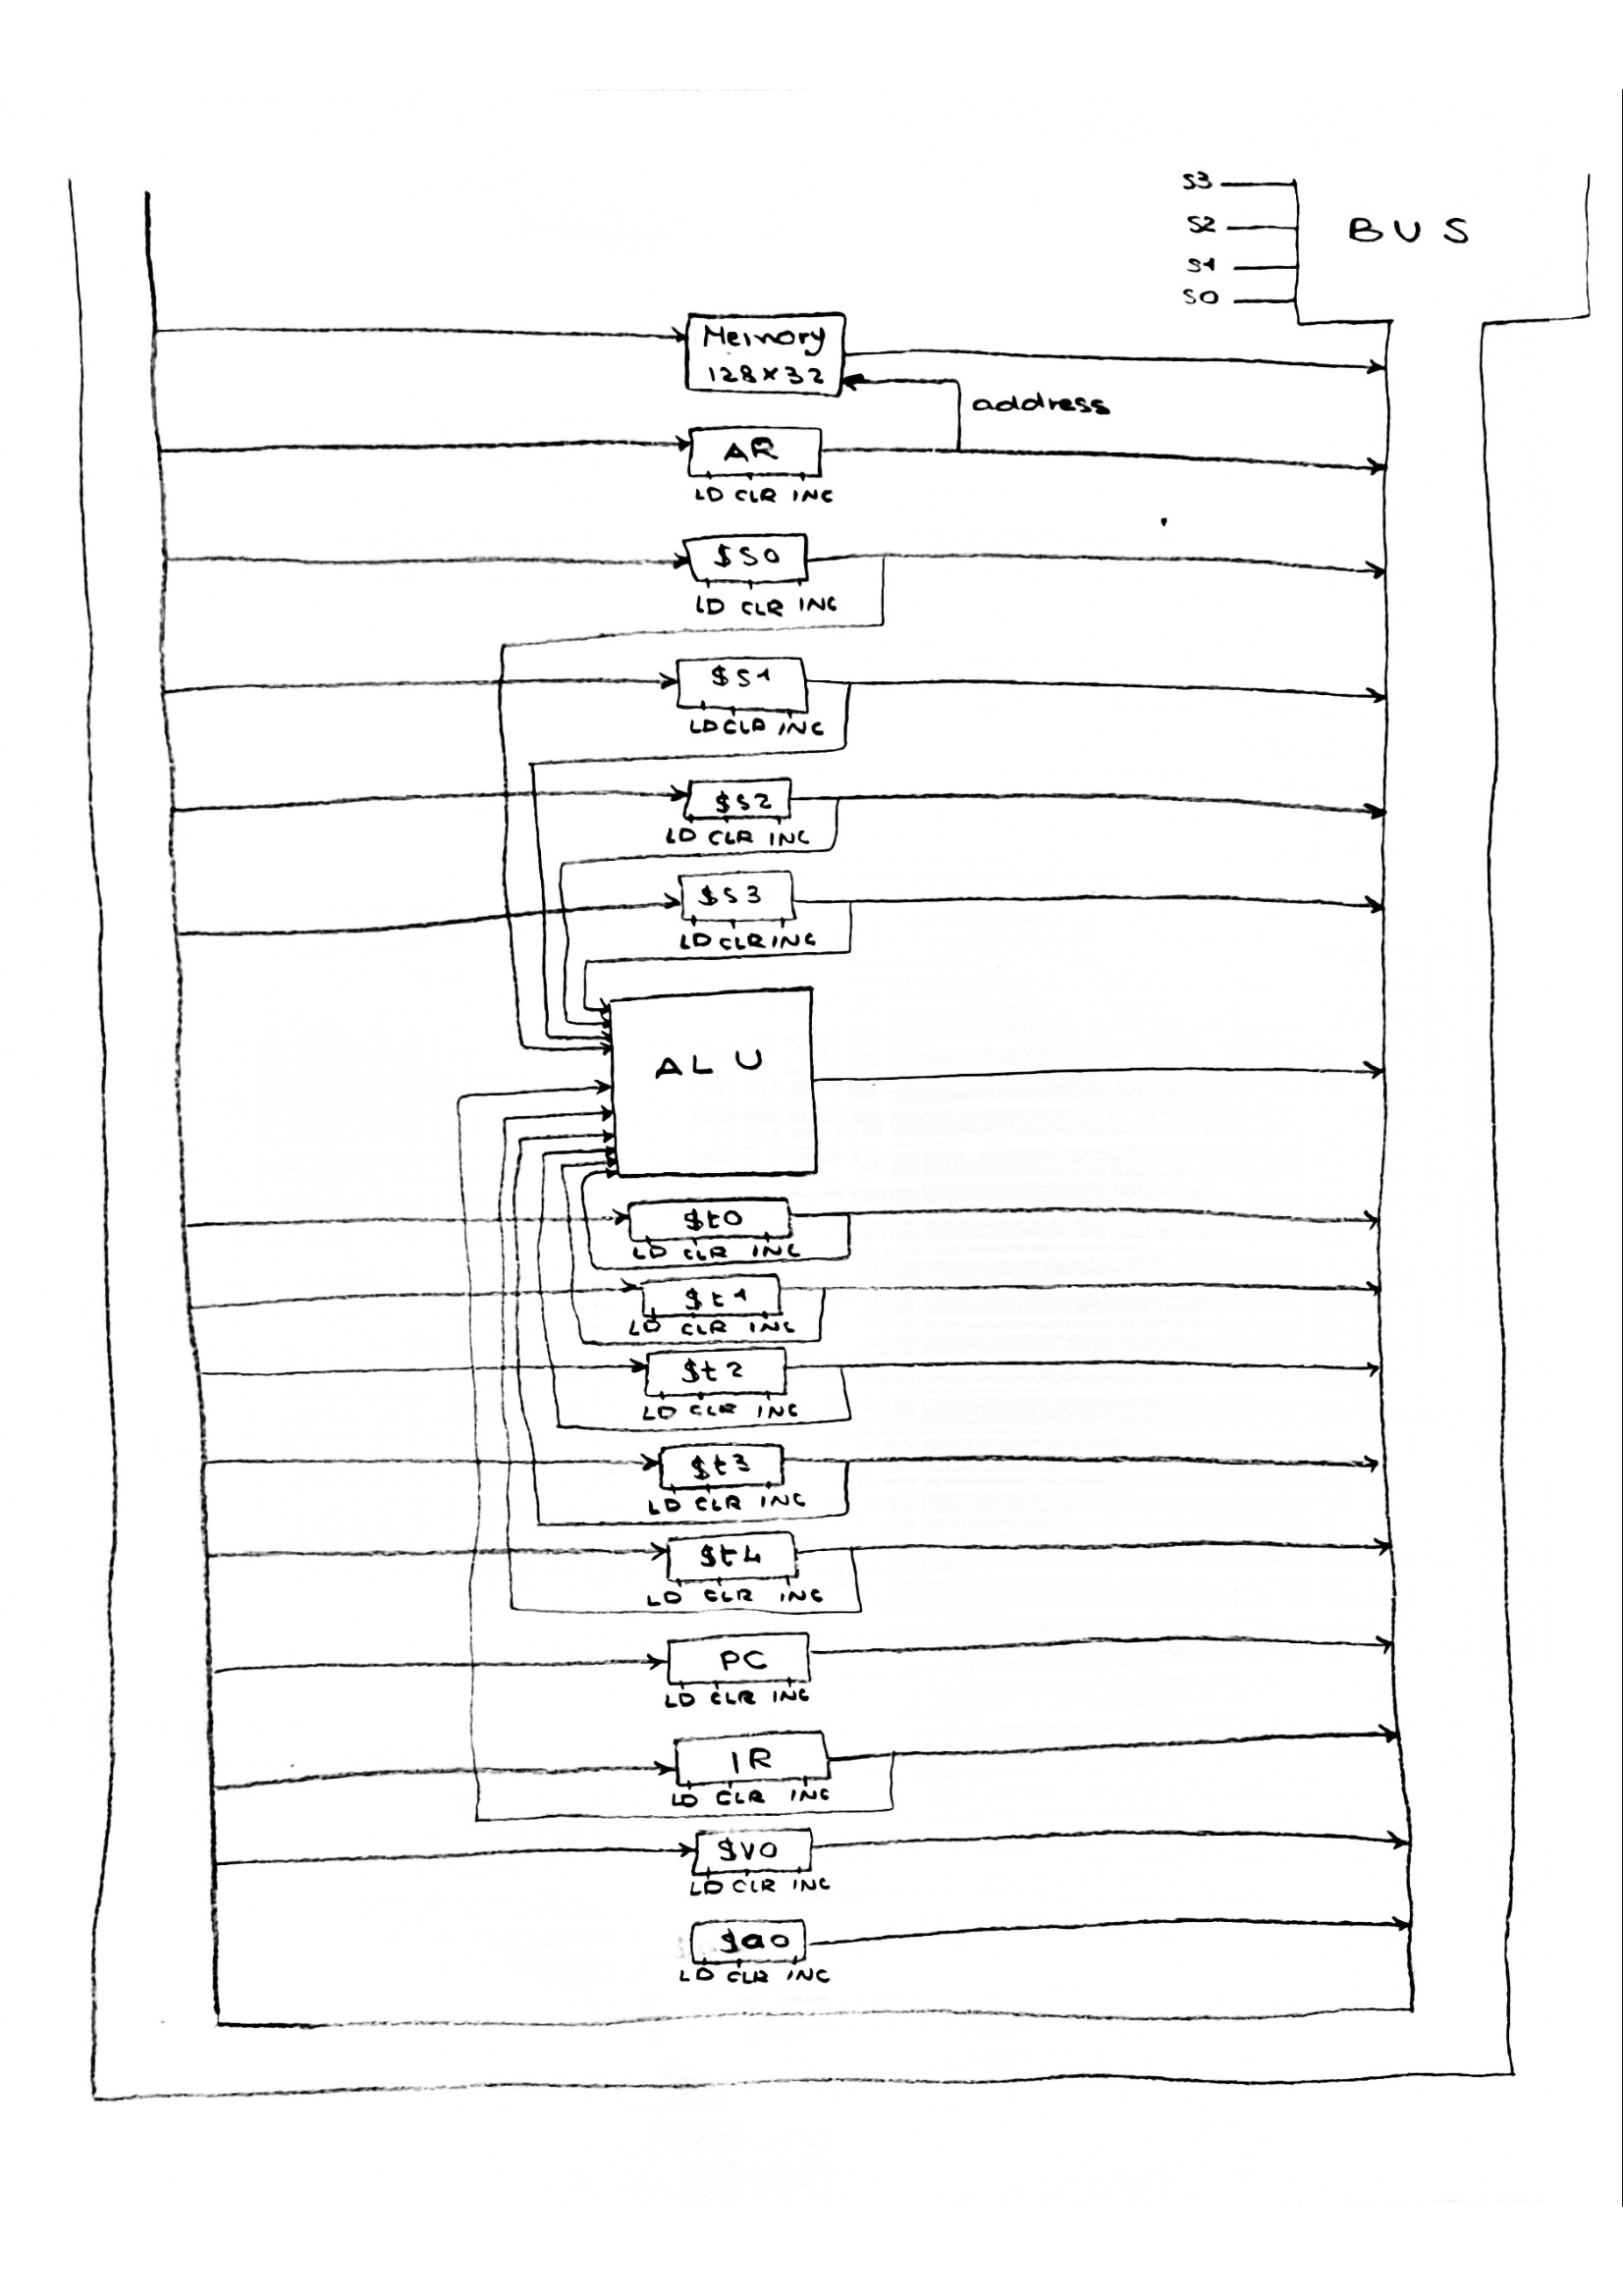 S3
S2
BUS
S1
S0
Memory
128x32
address
AR
LD CLR INC
$S0
LD CLR INC
$S1
LD CLR INC
$S2
LD CLR INC
$S3
LD CLR INC
ALU
$t0
LD CLR INC
$t1
LD CLR INC
$t2
LD CLR INC
$t3
LD CLR INC
$t4
LD CLR INC
PC
LD CLR INC
IR
LD CLR INC
$V0
LD CLR INC
$a0
LD CLR INC